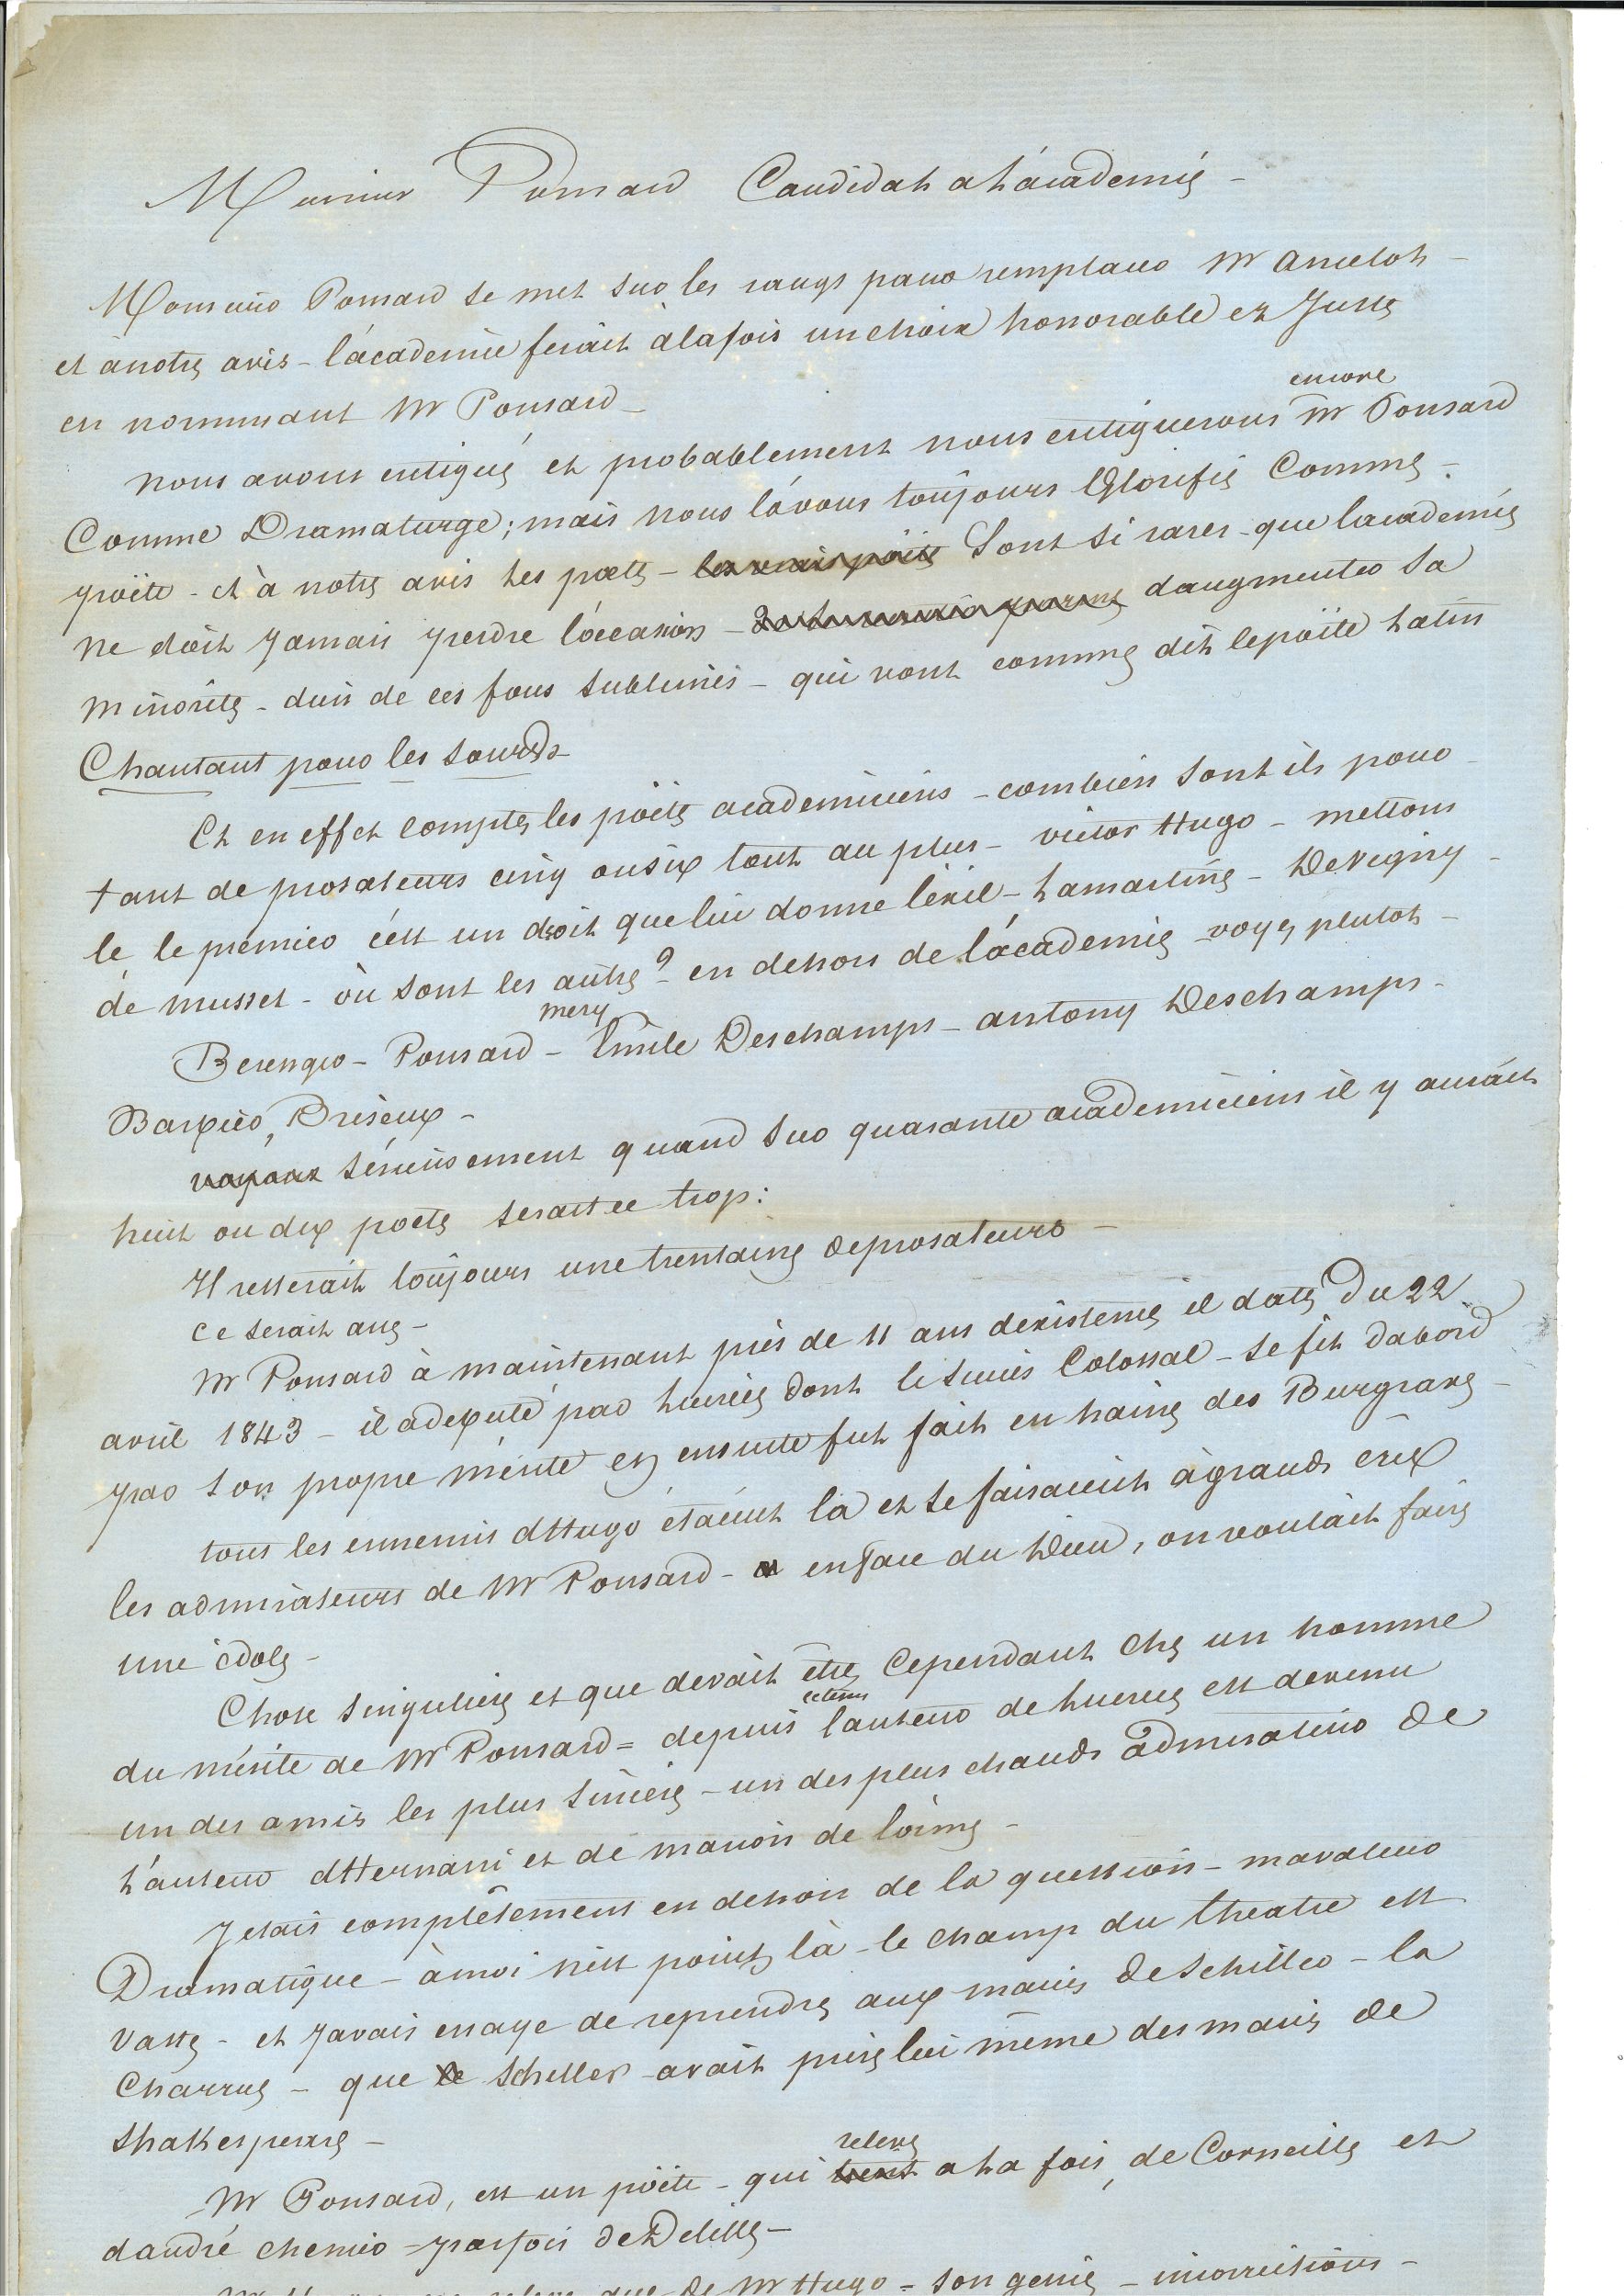 Monsieur Ponsard Candidat a l'académie –
Monsieur Ponsard se met sur les rangs pour remplacer Mr Ancelot –
et à notre avis – l'académie ferait à la fois un choix honorable et Juste
en nommant Mr Ponsard –
Nous avons critiqué et probablement nous critiquerons encore Mr Ponsard
Comme Dramaturge; mais nous l'avons toujours Glorifié Comme –
poëte – et à notre avis les poetes – les vrais poëtes Sont si rares – que lacadémie
ne doit Jamais perdre l'occasion – daugmenter sa
minorité – d'un de ces fous sublimes – qui vont comme dit le poëte latin
Chantant pour les sourds
Et en effet comptez les poëtes academiciens – combien sont ils pour –
tant de prosateurs cinq ou six tout au plus – victor Hugo – mettons
le le premier c'est un droit que lui donne l'exil – Lamartine – De Vigny –
de musset – où sont les autres? – en dehors de l'académie voyez plutot –
Berenger – Ponsard – mery Emile Deschamps – antony Deschamps –
Barbier, Briseux –
voyons sérieusement quand sur quarante academiciens il y aurait
huit ou dix poetes serait ce trop:
Il resterait toujours une trentaine de prosateurs –
ce serait assez –
Mr Ponsard à maintenant près de 11 ans dexistence il date du 22
avril 1843 – il a debuté par Lucrèce dont le succès Colossal – se fit dabord
par son propre mérite et ensuite fut fait en haine des Burgraves –
tous les ennemis d'Hugo étaient là et se faisaient à grands cris
les admirateurs de Mr Ponsard – en face du Dieu, on voulait faire
une idole –
Chose singuliere et que devait être Cependant chez un homme
du mérite de Mr Ponsard = depuis ce tems l'auteur de Lucrece est devenu
un des amis les plus sincères – un des plus chauds admirateurs de
l'auteur d'Hernani et de marion de lorme –
J'etais complêtement en dehors de la question – ma valeur
Dramatique – à moi n'est point là – le champ du theatre est
vaste – et J'avais essaye de reprendre aux mains de Schiller – la
Charrue – que Schiller avait prise lui même des mains de
Shakespeare –
Mr Ponsard, est un poëte – qui tient releve a la fois, de Corneille et
dandré chenier – parfois de Delille –
que de Mr Hugo – son genie – incorrections –